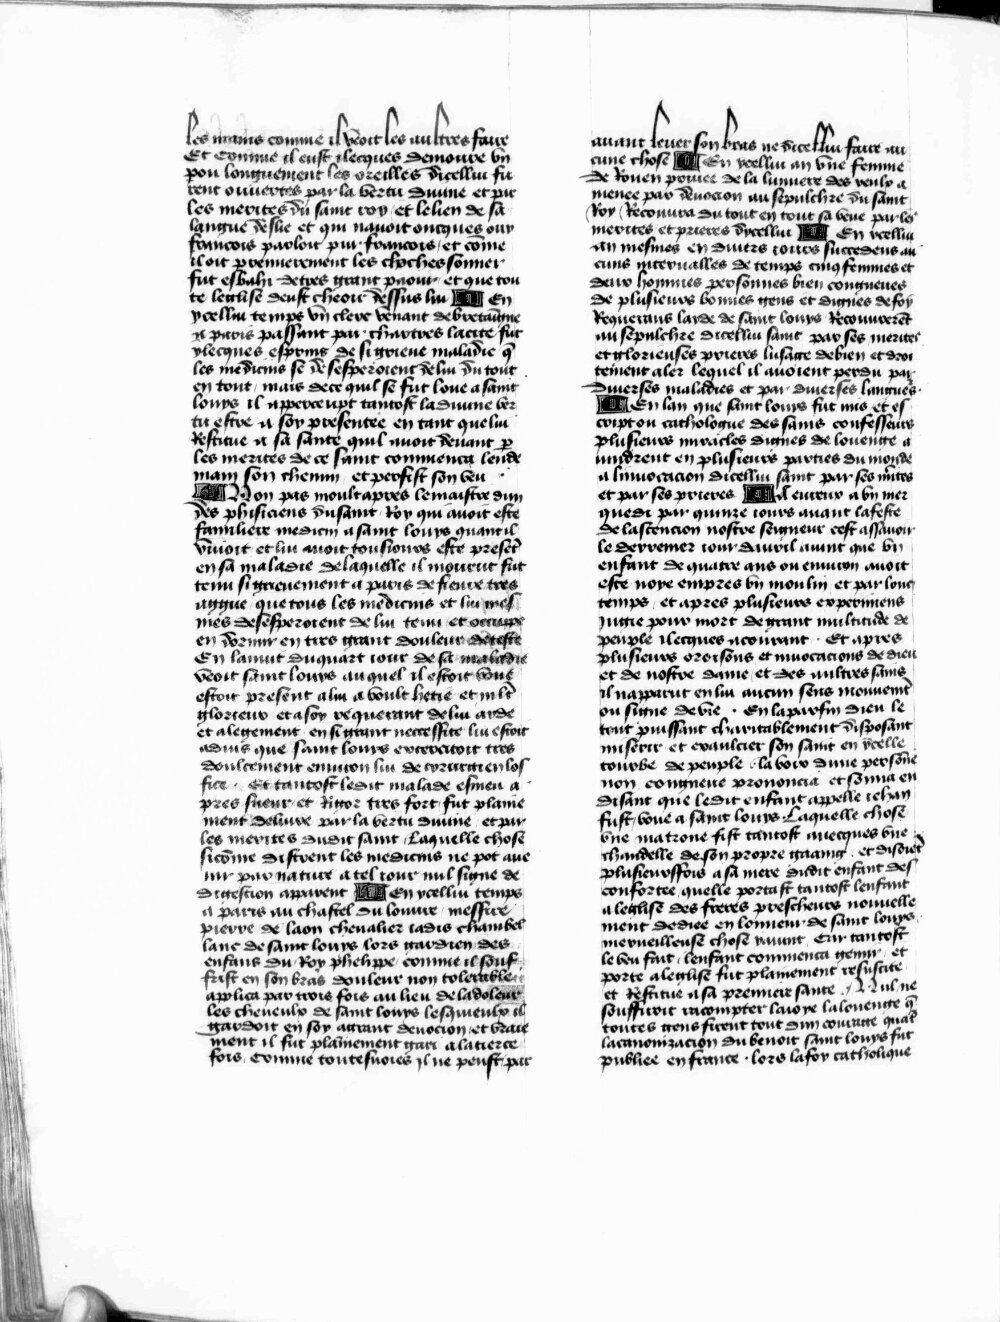 les mains comme il veoit les aultres faire
Et comme il eust ilecques demoure vn
pou longuement les oreilles dicellui fu
rent ouuertes par la vertu diuine et par
les merites du saint roy / et le lien de sa
langue deslie et qui nauoit oncques ouy
francois parloit pur francois / et come
il oit premierement les cloches sonner
fut esbahi de tres grant paour / et que tou
te leglise deust cheoir dessus lui En
ycellui temps vn clerc venant de bretaigne
a paris passant par chartres la cite fut
ylecques esprins de si griene maladie q
les medicins se desesperoient de lui du tout
en tout / mais de ce quil se fut loue a saint
loays il appercupt tantost la diuine ver
tu estre a soy presentee en tant que lui
Restitue a sa sante quil auoit deuant p
les merites de ce saint commenca lende
main son chemin / et perfist son veu
Non pas moult apres le maistre dun
des phisiciens du saint Roy qui auoit este
familiere medicin a saint louys quant il
viuoit et lui auoit tousiours este present
en sa maladie de laquelle il mourut fut
tenu si griefuement a paris de fieure tres
aggue que tous les medicins et lui mes
mes desesperoient de lui tenu et occupe
en dormir en tres grant douleur de teste
En la nuit du quart iour de sa maladie
veoit saint louys auquel il estoit venu
estoit present a lui a voult hetie et mlt
glorieux et a soy requerant de lui aide
et alegement en si grant necessite lui estoit
aduis que saint louys exercitoit tres
doulcement enuiron lui de
fice Et tantost ledit malade esmeu a
pres sueur et Rigor tres fort fut plaine
ment deliure par la vertu diuine et par
les merites dudit saint / Laquelle chose
sicome distrent les medicins ne pot aue
nir par nature a tel iour nul signe de
digestion apparent En ycellui temps
a paris au chastel du louure / messire
pierre de laon cheualier iadis chambel
lanc de saint louys lors gardien des
enfans du Roy phelippe comme il souf
frist en son bras douleur non tolerable
applica par trois fois au lieu de la doleur
les cheueulx de saint louys lesquieulx il
gardoit en soy a grant deuocion et vraie
ment il fut plainement gari a la tierce
fois / Comme toutesuoies il ne peust par
auant leuer son bras ne dicellui faire au
cune chose En ycellui an vne femme
de Rouen priuee de la lumiere des yeulx a
menee par deuocion au sepulchre du saint
Roy / Recouura du tout en tout sa veue par les
merites et prieres dycellui En ycellui
an mesmes en diuers iours succedens au
cuns interualles de temps cinq femmes et
deux hommes personnes bien congneues
de plusieurs bonnes gens et dignes de foy
Requerans laide de saint louys Recouurerent
au sepulchre dicellui saint par ses merites
et glorieuses prieres lusage de bien et droi
tement aler lequel il auoient perdu par
diuerses maladies et par diuerses langues
En lan que saint louys fut mis et es
cript ou cathologue des sains confesseurs
plusieurs miracles dignes de louenge a
uindrent en plusieurs parties du monde
a linuocacion dicellui saint par ses merites
et par ses prieres Il eureux a vn mer
quedi par quinze iours auant la feste
de lascencion nostre seigneur cest assauoir
le derrenier iour dauril auint que vn
enfant de quatre ans ou enuiron auoit
este noye empres vn moulin et par long
temps / et apres plusieurs experimens
iugie pour mort de grant multitude de
peuple ilecques acourant Et apres
plusieurs oroisons et inuocacions de dieu
et de nostre dame / et des aultres sains
il napparut en lui aucun sens mouuement
ou signe de vie En la parfin dieu le
tout puissant charitablement disposant
miserir et exaulcier son saint en ycelle
tourbe de peuple / la voix dune personne
non congneue prononcia et sonna en
disant que ledit enfant appelle iehan
fust voue a saint louys Laquelle chose
vne matrone fist tantost auecques vne
chandelle de son propre gaaing / et disoit
plusieursfois a sa mere dudit enfant des
confortee quelle portast tantost lenfant
a leglise des freres prescheurs nouuelle
ment dediee en lonneur de saint louys
merueilleuse chose Car tantost
le veu fait / lenfant commenca gemir / et
porte a leglise fut plainement resuscite
et Restitue a sa premiere sante Nul ne
souffiroit racompter la ioye la louenge q
toutes gens firent tout dun courage quant
la canonizacion du benoit saint louys fut
publiee en france lors la foy catholique